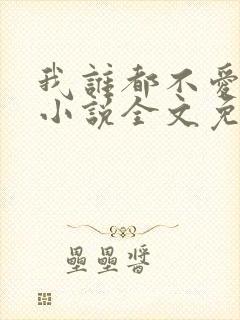 我誰都不愛
小說全文免
壘壘醬